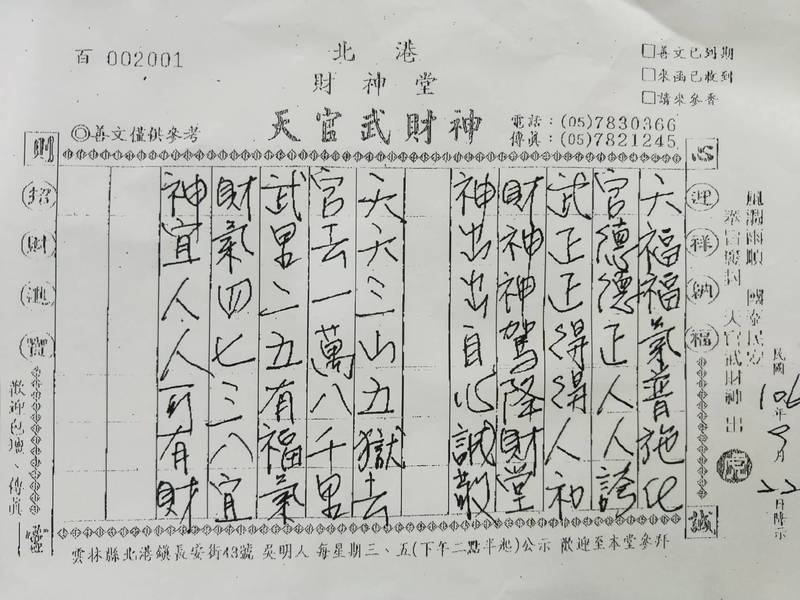 百 002001
北港
財神堂
天官武財神
◎善文僅供參考
電話：(05)7830366
傳真：(05)7821245
□善文已到期
□來函已收到
□請來參香
風調雨順 國泰民安
奉旨 天官武財神出
民國106年9月22日降示
心
迎祥納福
誠
天福福氣普施化
官德德正人人誇
武正正得得人和
財神神駕降財堂
神出出自心誠敬
天天三山五獄去
官去一萬八千里
武里二五有福氣
財氣四七三八宜
神宜人人可有財
則
招財進寶
靈
歡迎包壇、傳真
雲林縣北港鎮長安街43號 吳明人 每星期三、五(下午二點半起)公示 歡迎至本堂參拜